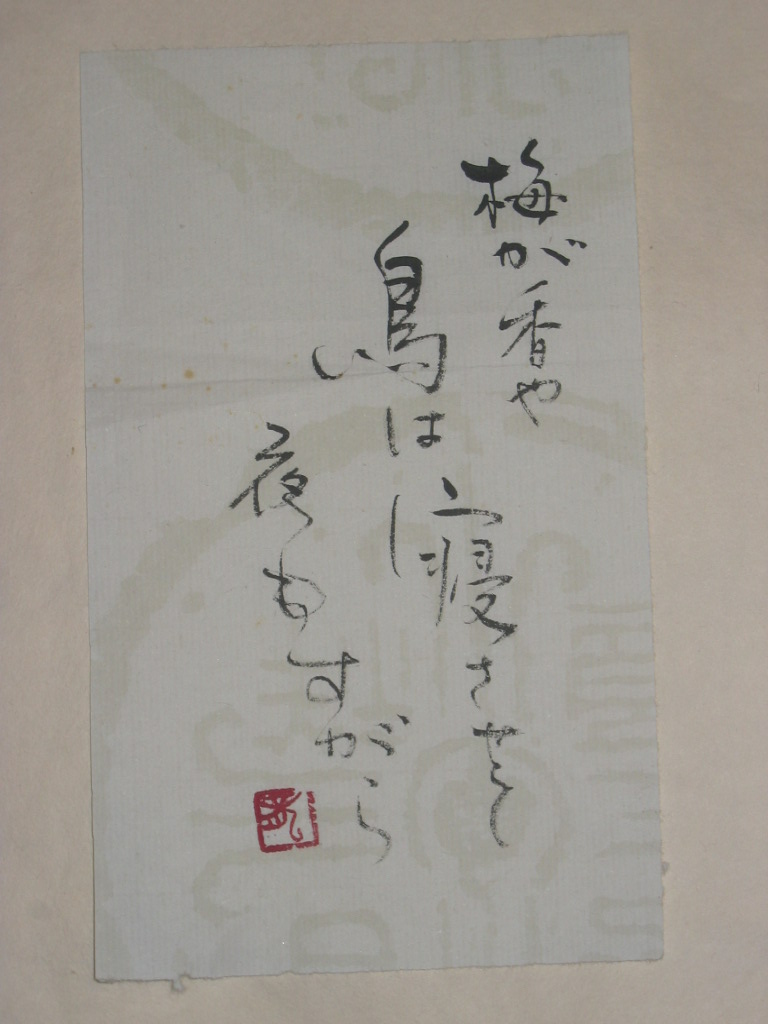 梅が香や
鳥は寝させて
夜もすがら